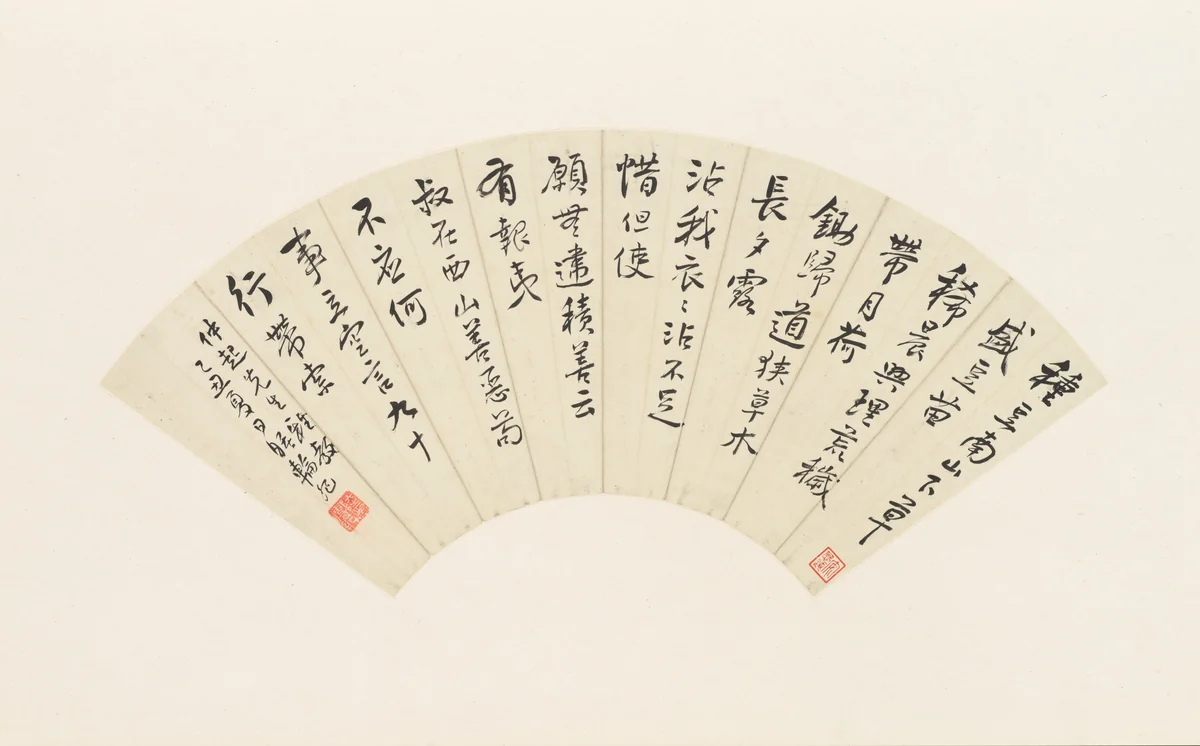 種豆南山下草
盛豆苗
稀晨興理荒穢
帶月荷
鋤歸道狹草木
長夕露
沾我衣々沾不足
惜但使
願無違積善云
有報夷
叔在西山善惡苟
不應何
事立空言九十
行帶索
仲起先生雅教
乙丑夏日